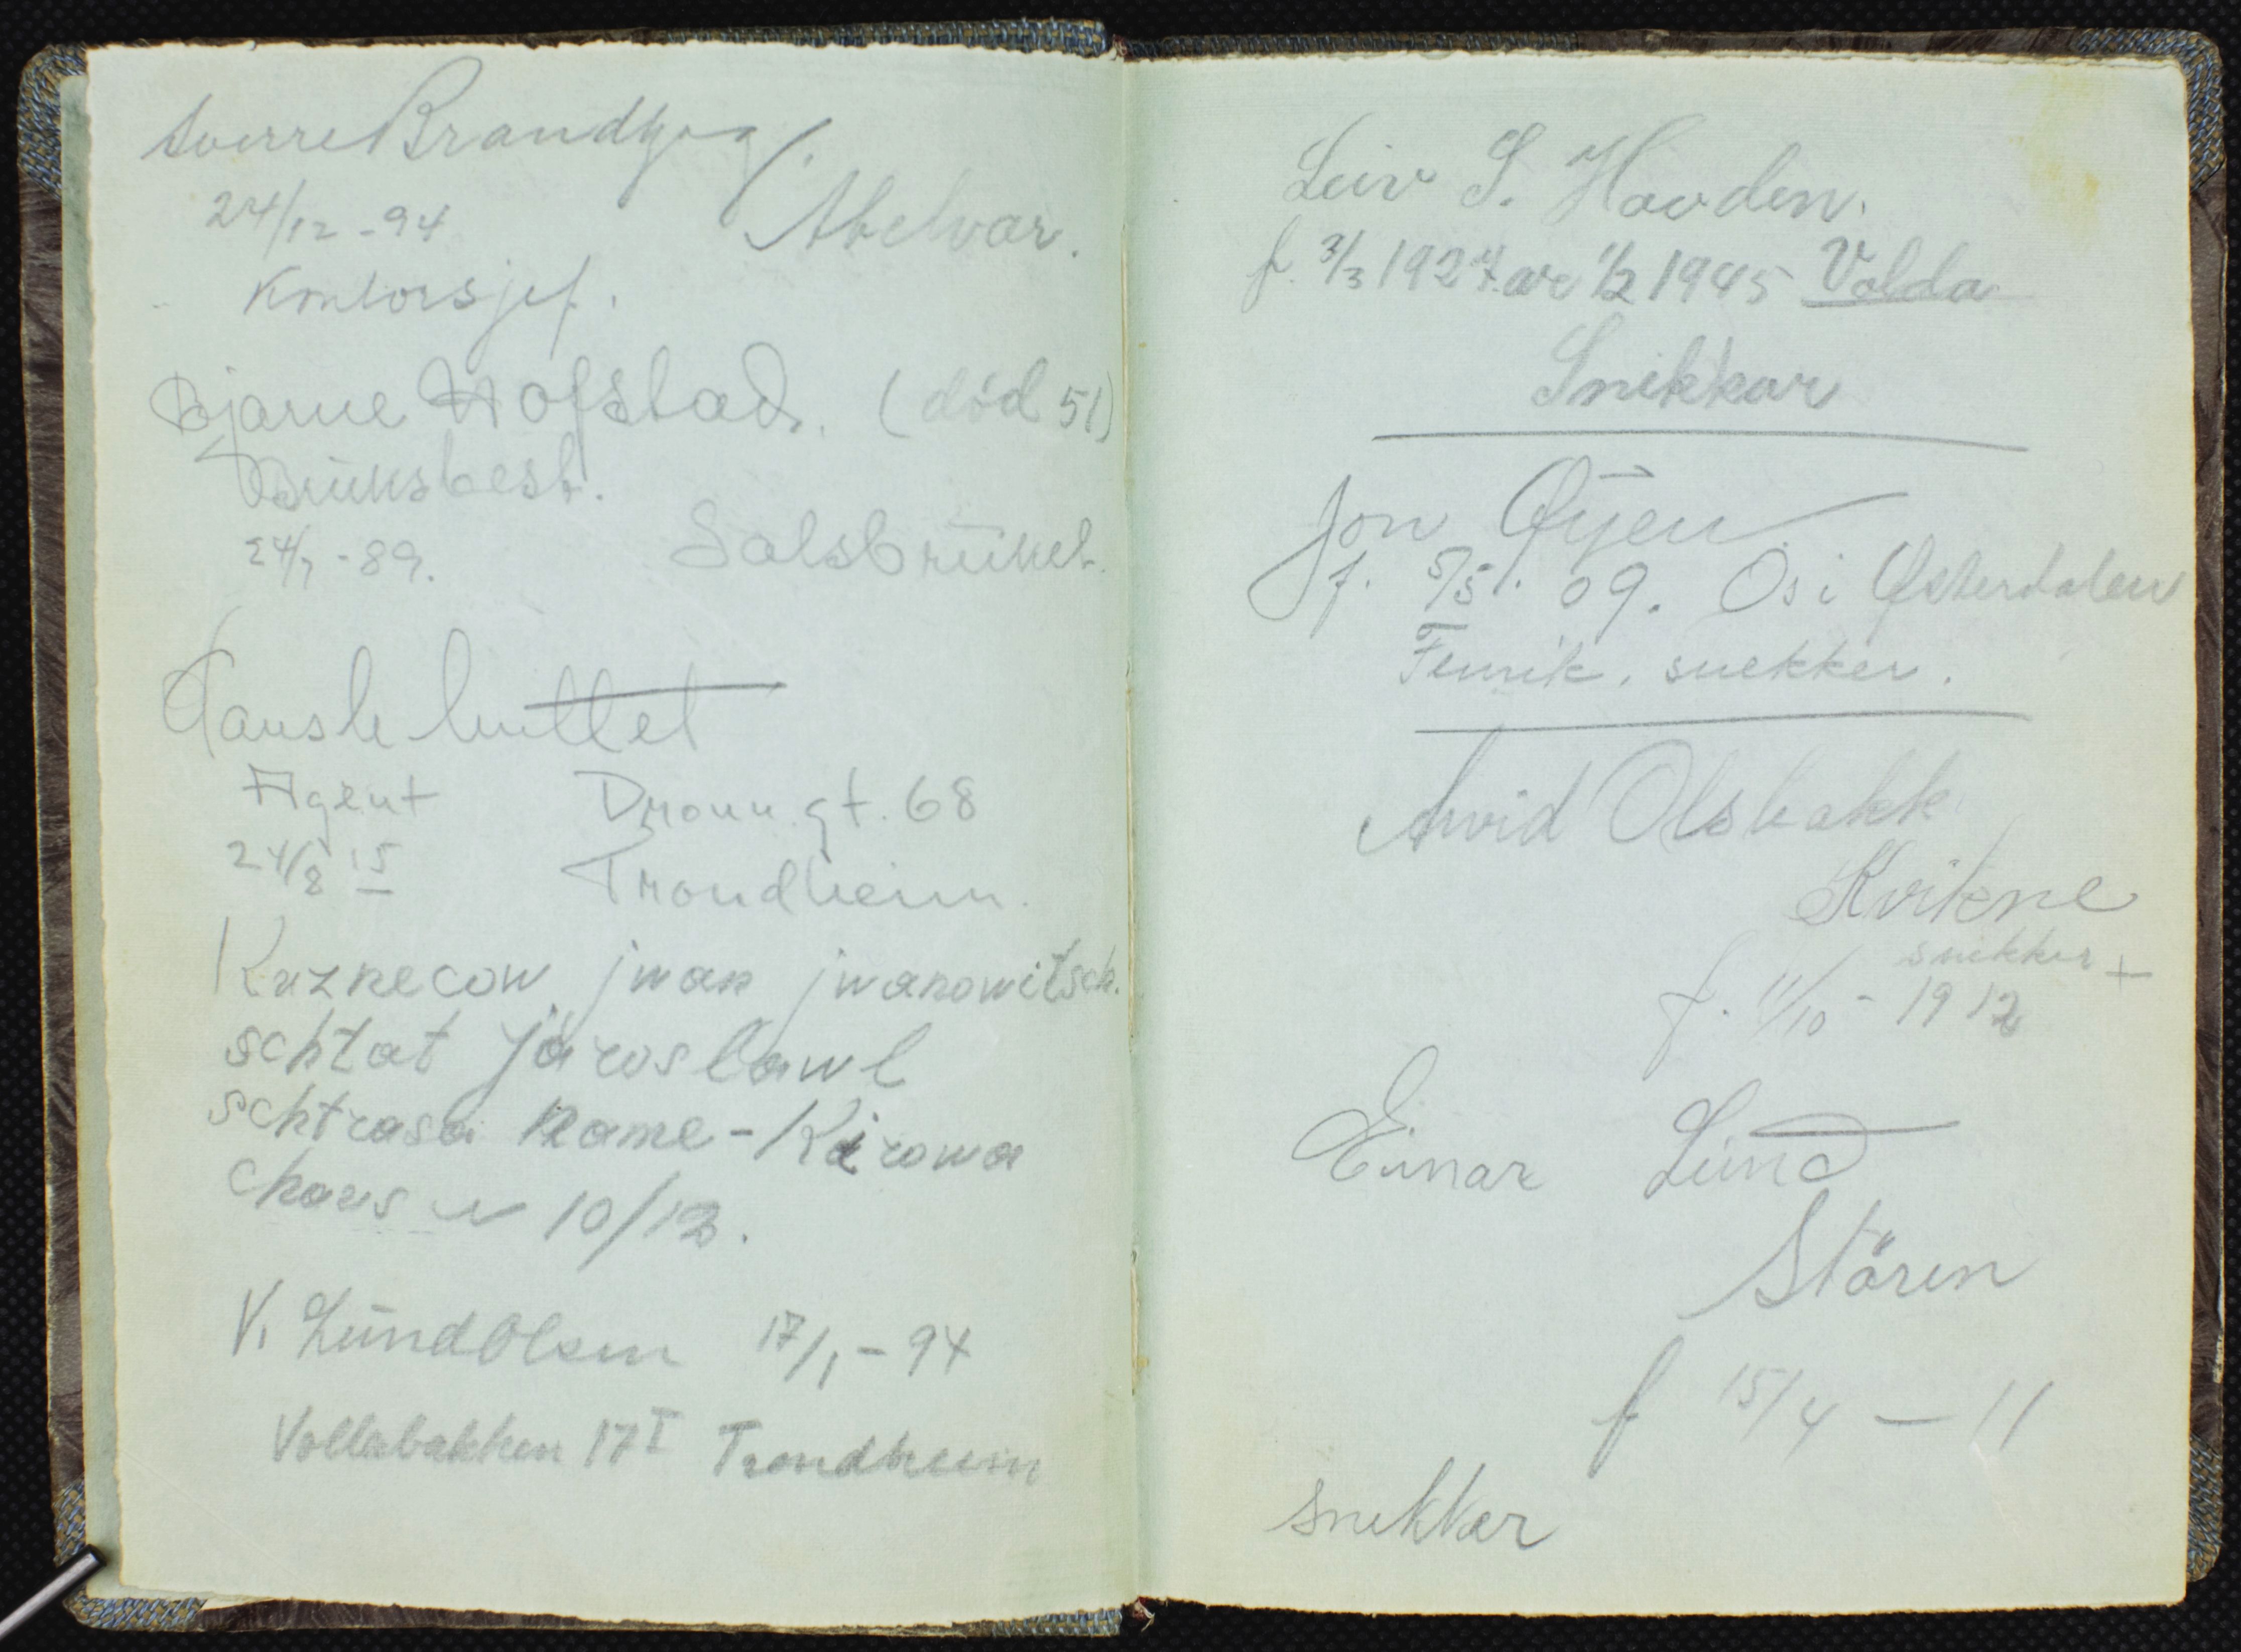 Sverre Brandtzæg.
24/12 - 94 Abelvar.
Kontorsjef.
Bjarne Hofstad. (död 51)
Bruksbest.
24/7 - 89. Salsbruket.
Agent Dronn. gt. 68
24/8 15 Trondheim.
Kuznecow jwan jwanowitsch.
schtat jaroslawl
schtrasa Name - Kirowa
chaus N 10/12.
V. Lund Olsen 17/1 - 94
Vollabakken 17 I Trondheim
Leiv S. Hovden.
f. 3/3 1924. 1/2 1945 Volda
Snikkar
Jon Øyen
f. 5/5. 09. Os i Østerdalen
Fenrik, snekker.
Arvid Olsbakk
Kvikne
snekker +
f. 11/10 - 1912
Einar Lund
Stören
f 15/4 - 11
snekker